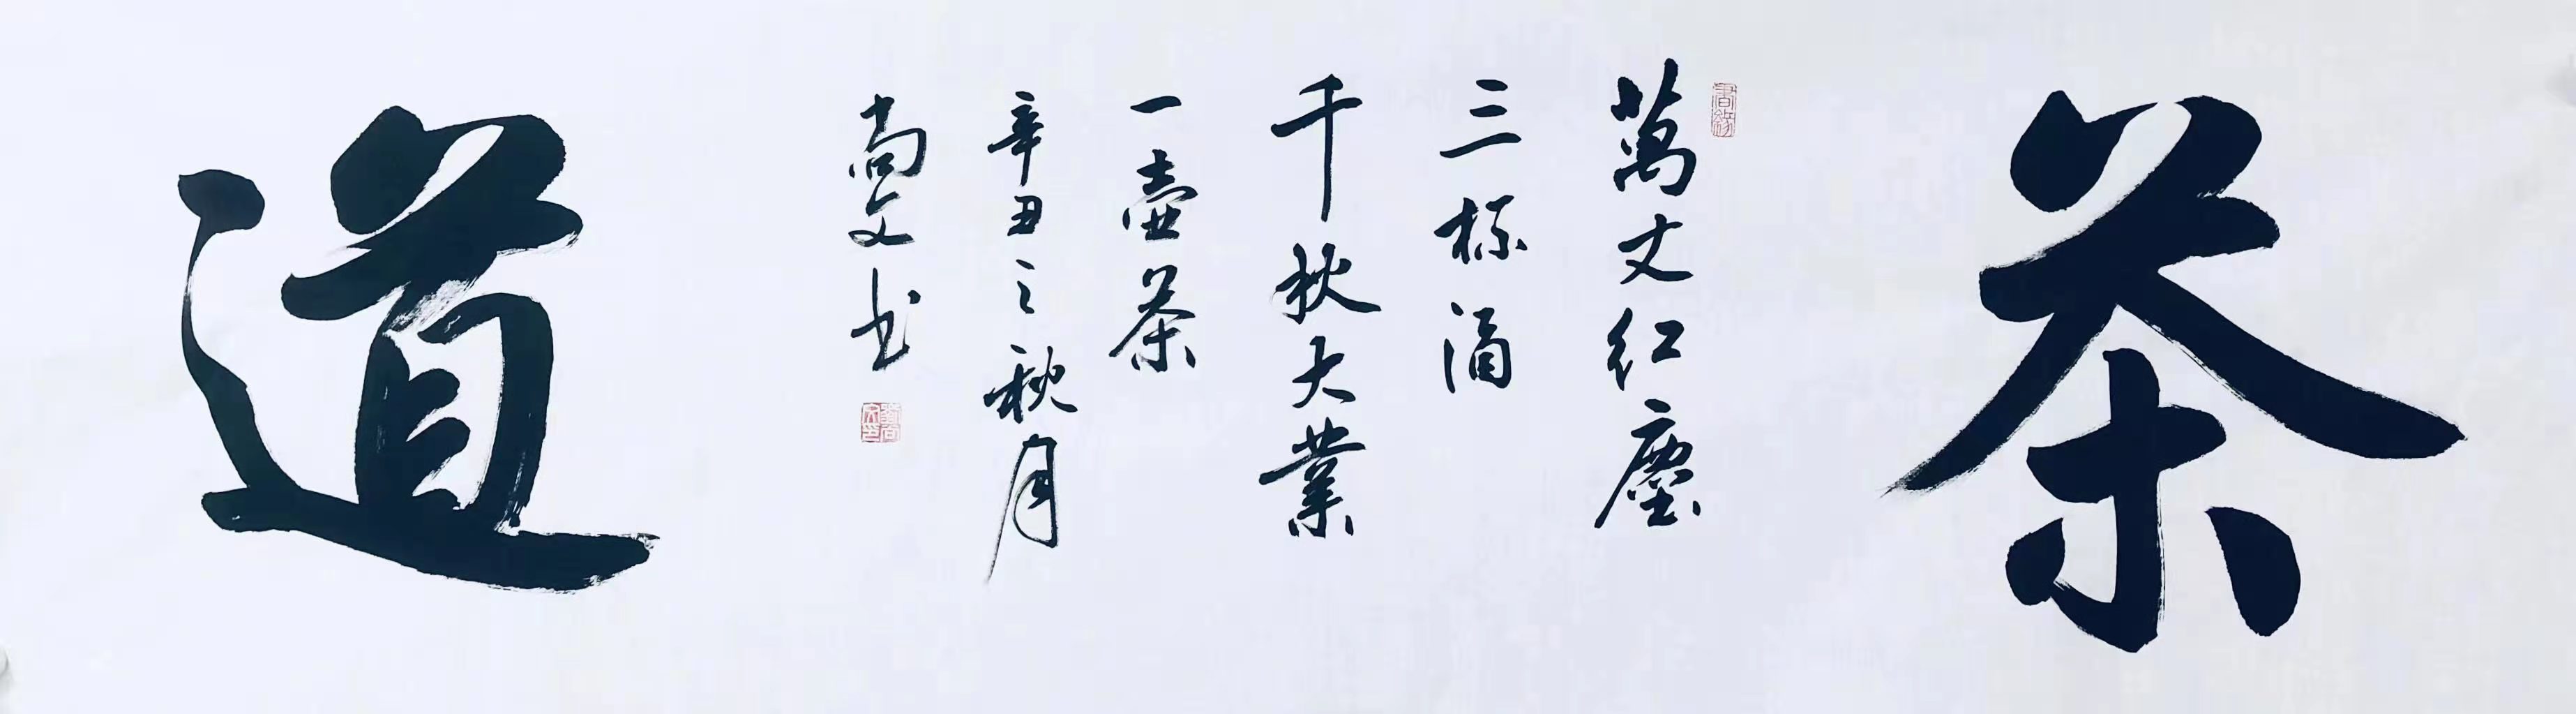 茶
萬丈紅塵
三杯酒
千秋大業
一壺茶
辛丑之秋月
尚文书
道